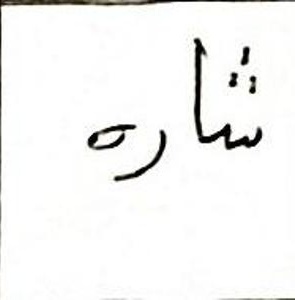 شاره